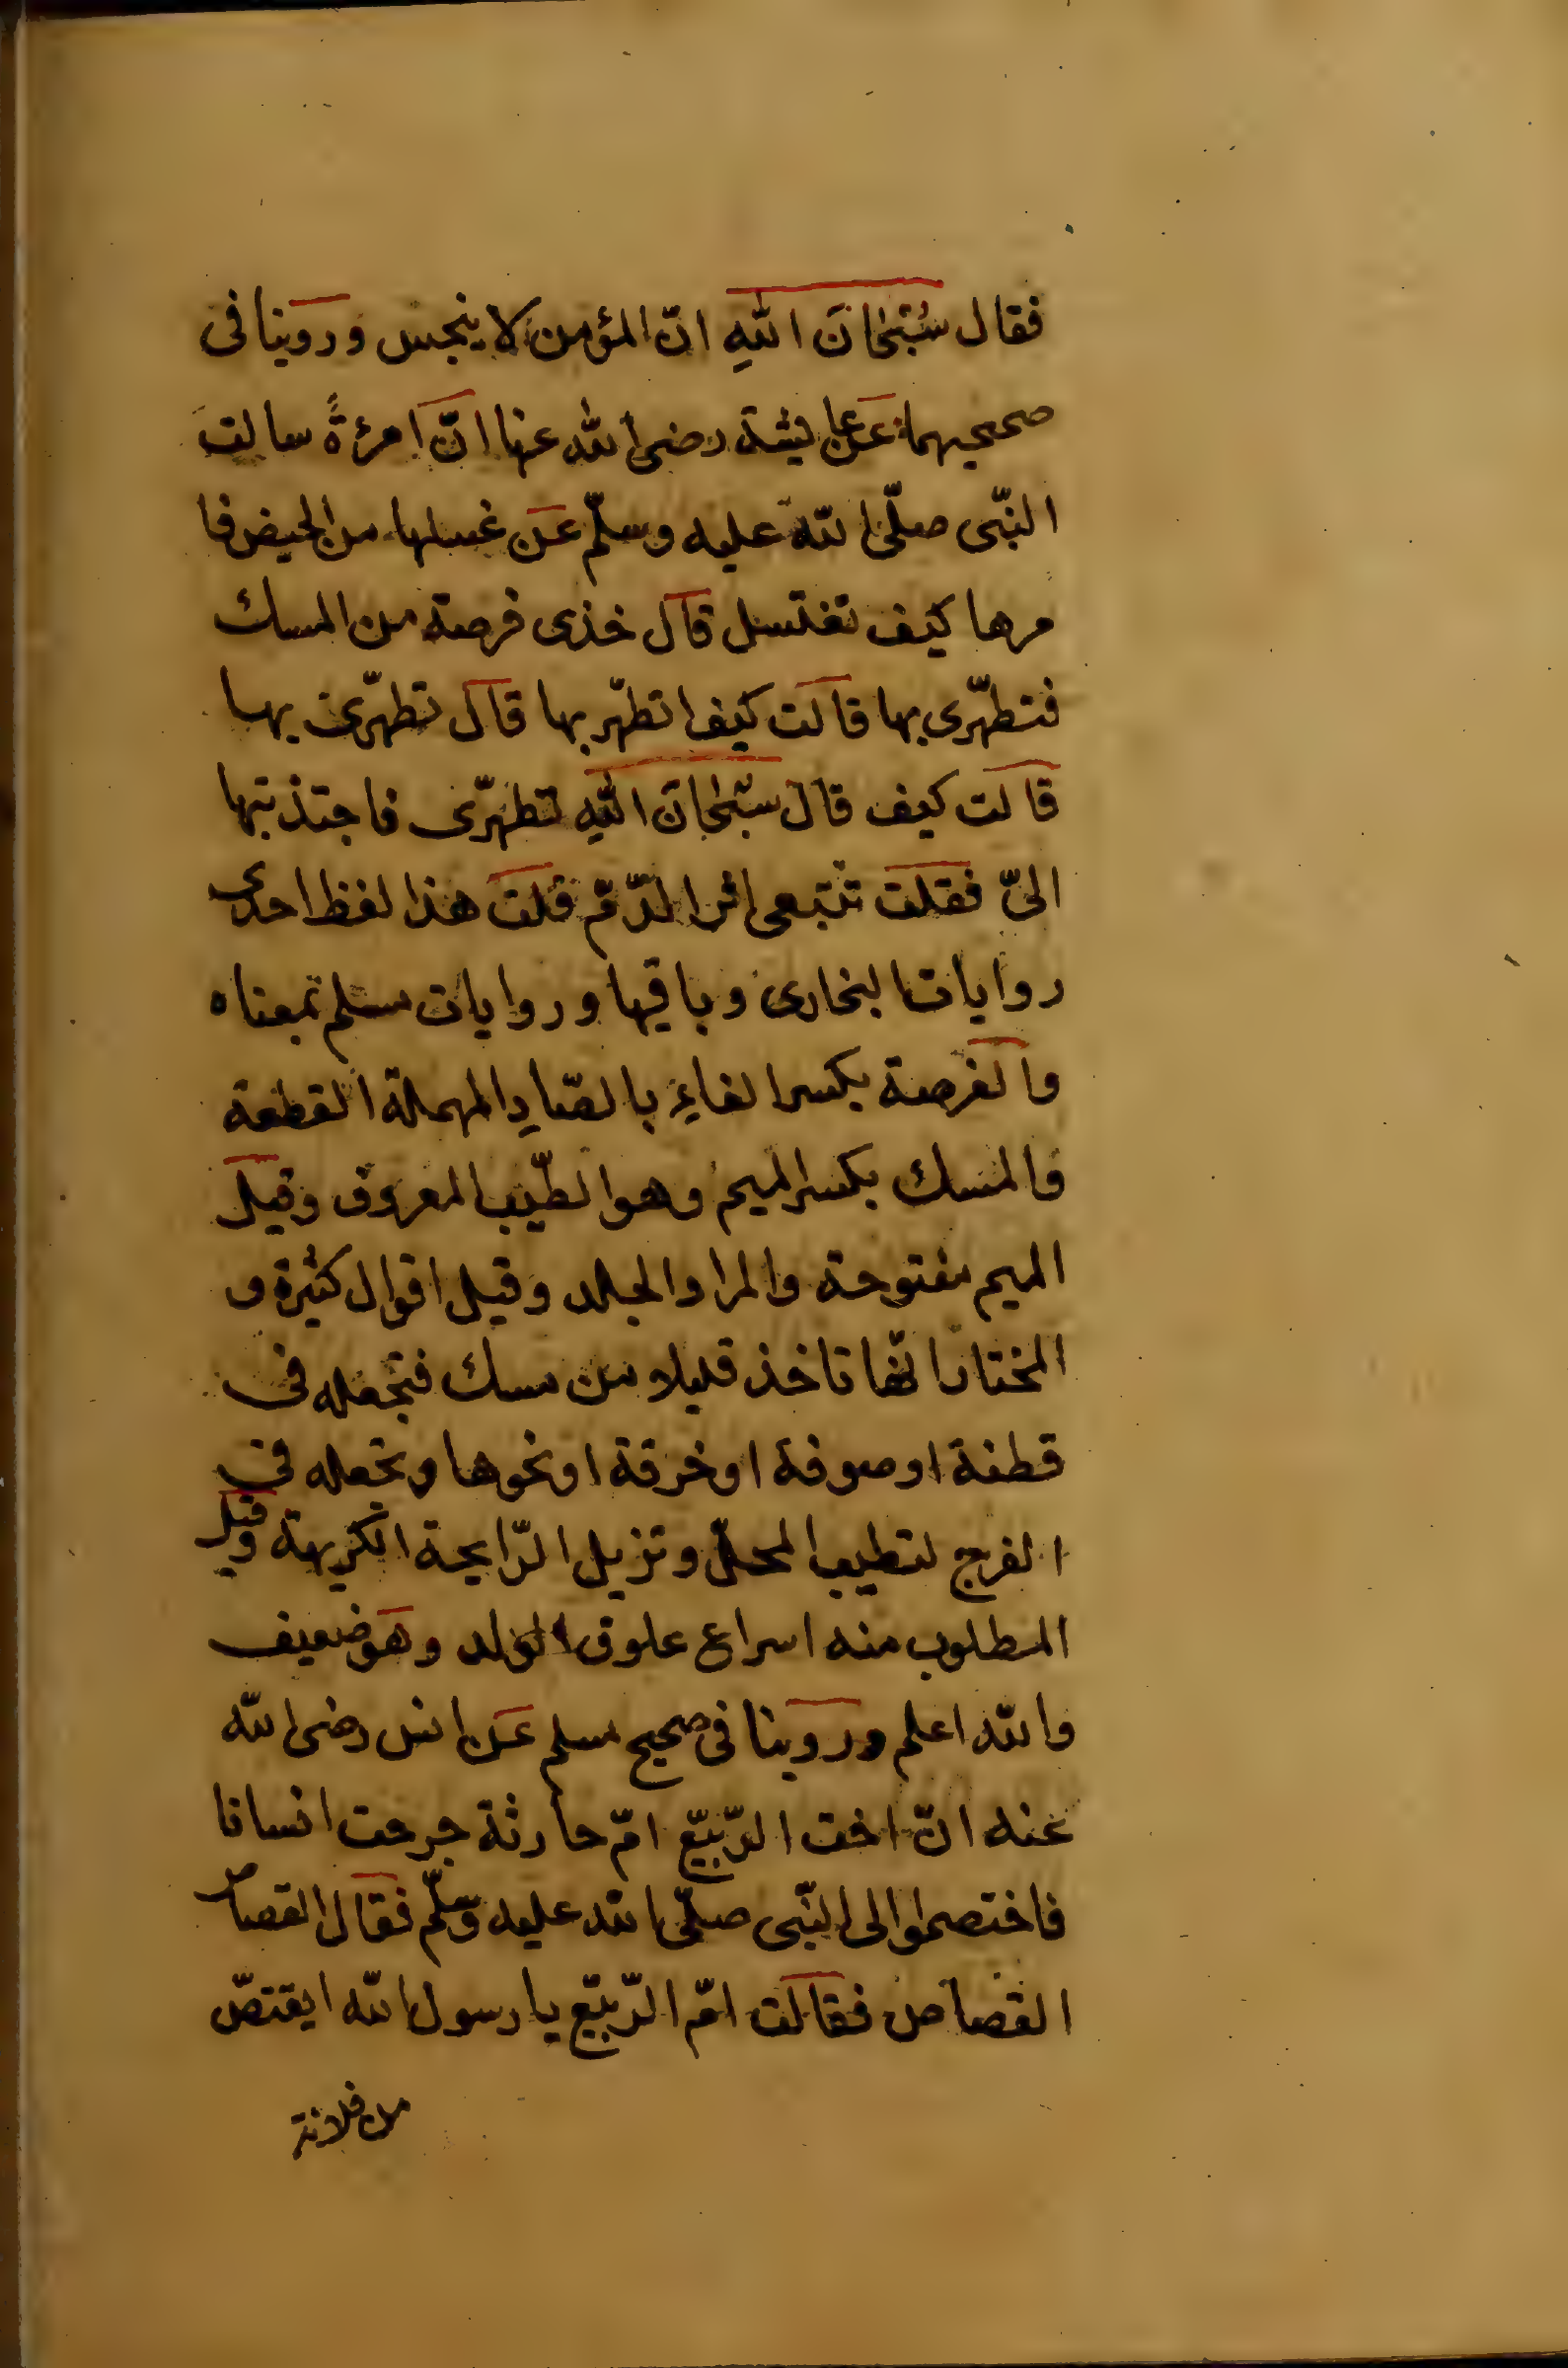 فقال سُبْحَانَ اللهِ انّ المؤمن لا ينجس وروينا فى
صحيحيهما عن عايشة رضى الله عنها انّ امرءةً سالت
النّبى صلّى الله عليه وسلّم عن غسلها من الحيض فا
مرها كيف تغتسل قال خذى فرصة من المسك
فتطهّرى بها قالت كيف اتطهّر بها قال تطهّرى بها
قالت كيف قال سبْحَانَ اللهِ تطهّرى فاجتذبتها
الىّ فقلت تتبعى اثر الدّم قلت هذا لفظ احدى
روايات البخارى وباقيها وروايات مسلم بمعناه
والفرصة بكسر الفاءِ بالصّادِ المهملة القطعة
فالمسك بكسر الميم وهو الطّيب المعروف وقيل
الميم مفتوحة والمراد الجلد وقيل اقوال كثيرة و
المختار انّها تاخذ قليلا من مسك فتجعله فى
قطنة او صوفة او خرقة او نحوها وتجعله فى
الفرج لتطيب المحلّ وتزيل الرّايحة الكريهة وقيل
المطلوب منه اسراع علوق الولد وهو ضعيف
والله اعلم وروينا فى صحيح مسلم عن انس رضى الله
عنه انّ اخت الرّبيّع امّ حارثة جرحت انسانا
فاختصموا الى النّبى صلّى الله عليه وسلّم فقال القصاص
القصاص فقالت امّ الرّبيّع يا رسول الله ايقتصّ
من فلانة